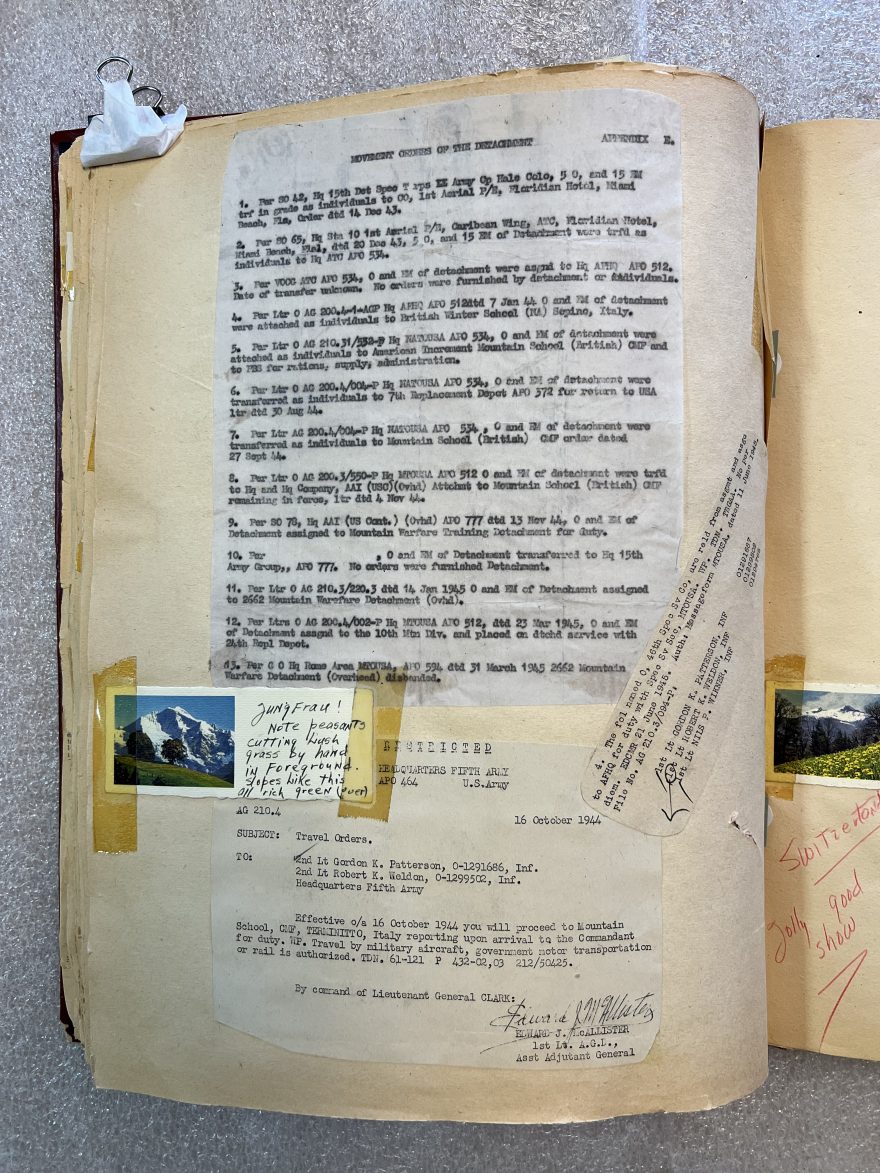 MOVEMENT ORDERS OF THE DETACHMENT APPENDIX E.
1. Per SO 42, Hq 15th Det Spec Trps Army Cp Hale Colo, 5 O, and 15 EM
trf in grade as individuals to CO, 1st Aerial P/E, Floridian Hotel, Miami
Beach, Fla, Order dtd 14 Dec 43.
2. Per SO 65, Hq Sta 10 1st Aerial P/E, Caribean Wing, ATC, Floridian Hotel,
Miami Beach, Fla, dtd 20 Dec 43, 5 O, and 15 EM of Detachment were trfd as
individuals to Hq ATC APO 534.
3. Per VOCG ATC APO 534, O and EM of detachment were asgnd to Hq AFHQ APO 512.
Date of transfer unknown. No orders were furnished by detachment or individuals.
4. Per Ltr O AG 200.4-1-AGP Hq AFHQ APO 512dtd 7 Jan 44 O and EM of detachment
were attached as individuals to British Winter School (NA) Sepino, Italy.
5. Per Ltr O AG 210.31/532-P Hq NATOUSA APO 534, O and EM of detachment were
attached as individuals to American Increment Mountain School (British) CMF and
to PBS for rations, supply, administration.
6. Per Ltr O AG 200.4/004-P Hq NATOUSA APO 534, O and EM of detachment were
transferred as individuals to 7th Replacement Depot APO 572 for return to USA
ltr dtd 30 Aug 44.
7. Per Ltr AG 200.4/004-P Hq NATOUSA APO 534 , O and EM of detachment were
transferred as individuals to Mountain School (British) CMF order dated
27 Sept 44.
8. Per Ltr O AG 200.3/550-P Hq MTOUSA APO 512 O and EM of detachment were trfd
to Hq and Hq Company, AAI (USC)(Ovhd) Attchmt to Mountain School (British) CMF
remaining in force, ltr dtd 4 Nov 44.
9. Per SO 78, Hq AAI (US Cont.) (Ovhd) APO 777 dtd 13 Nov 44, O and EM of
Detachment assigned to Mountain Warfare Training Detachment for duty.
10. Per , O and EM of Detachment transferred to Hq 15th
Army Group,, APO 777. No orders were furnished Detachment.
11. Per Ltr O AG 210.3/220.3 dtd 14 Jan 1945 O and EM of Detachment assigned
to 2662 Mountain Warefare Detachment (Ovhd).
12. Per Ltrs O AG 200.4/002-P Hq MTOUSA APO 512, dtd 23 Mar 1945, O and EM
of Detachment assgnd to the 10th Mtn Div. and placed on dtchd service with
24th Repl Depot.
13. Per G O Hq Rome Area MTOUSA, APO 594 dtd 31 March 1945 2662 Mountain
Warfare Detachment (Overhead) disbanded.
4. The fol named O, 46th Spec Sv Co, are reld from asgmt and asgd
to AFHQ for duty with Spec Sv Sec, MTOUSA. WP. TDN. TBGAA. No per
diem. EDCMR 21 June 1945. Auth: Messageform MTOUSA, dated 11 June 1945,
File No. AG 210.3/094-P,
1st Lt GORDON K. PATTERSON, INF
1st Lt ROBERT K. WELDON, INF
1st Lt NILS P. INF
JUNGFRAU!
NOTE peasants
cutting Lush
grass by hand
in Foreground.
Slopes Like this
all rich green (over)
RESTRICTED
HEADQUARTERS FIFTH ARMY
APO 464 U.S.Army
AG 210.4
16 October 1944
SUBJECT: Travel Orders.
TO: 2nd Lt Gordon K. Patterson, O-1291686, Inf.
2nd Lt Robert K. Weldon, O-1299502, Inf.
Headquarters Fifth Army
Effective o/a 16 October 1944 you will proceed to Mountain
School, CMF, TERMINITTO, Italy reporting upon arrival to the Commandant
for duty. WP. Travel by military aircraft, government motor transportation
or rail is authorized. TDN. 61-121 P 432-02,03 212/50425.
By command of Lieutenant General CLARK:
Edward J McAllister
EDWARD J. McALLISTER
1st Lt. A.G.D.,
Asst Adjutant General
Switzerland
Jolly good
show